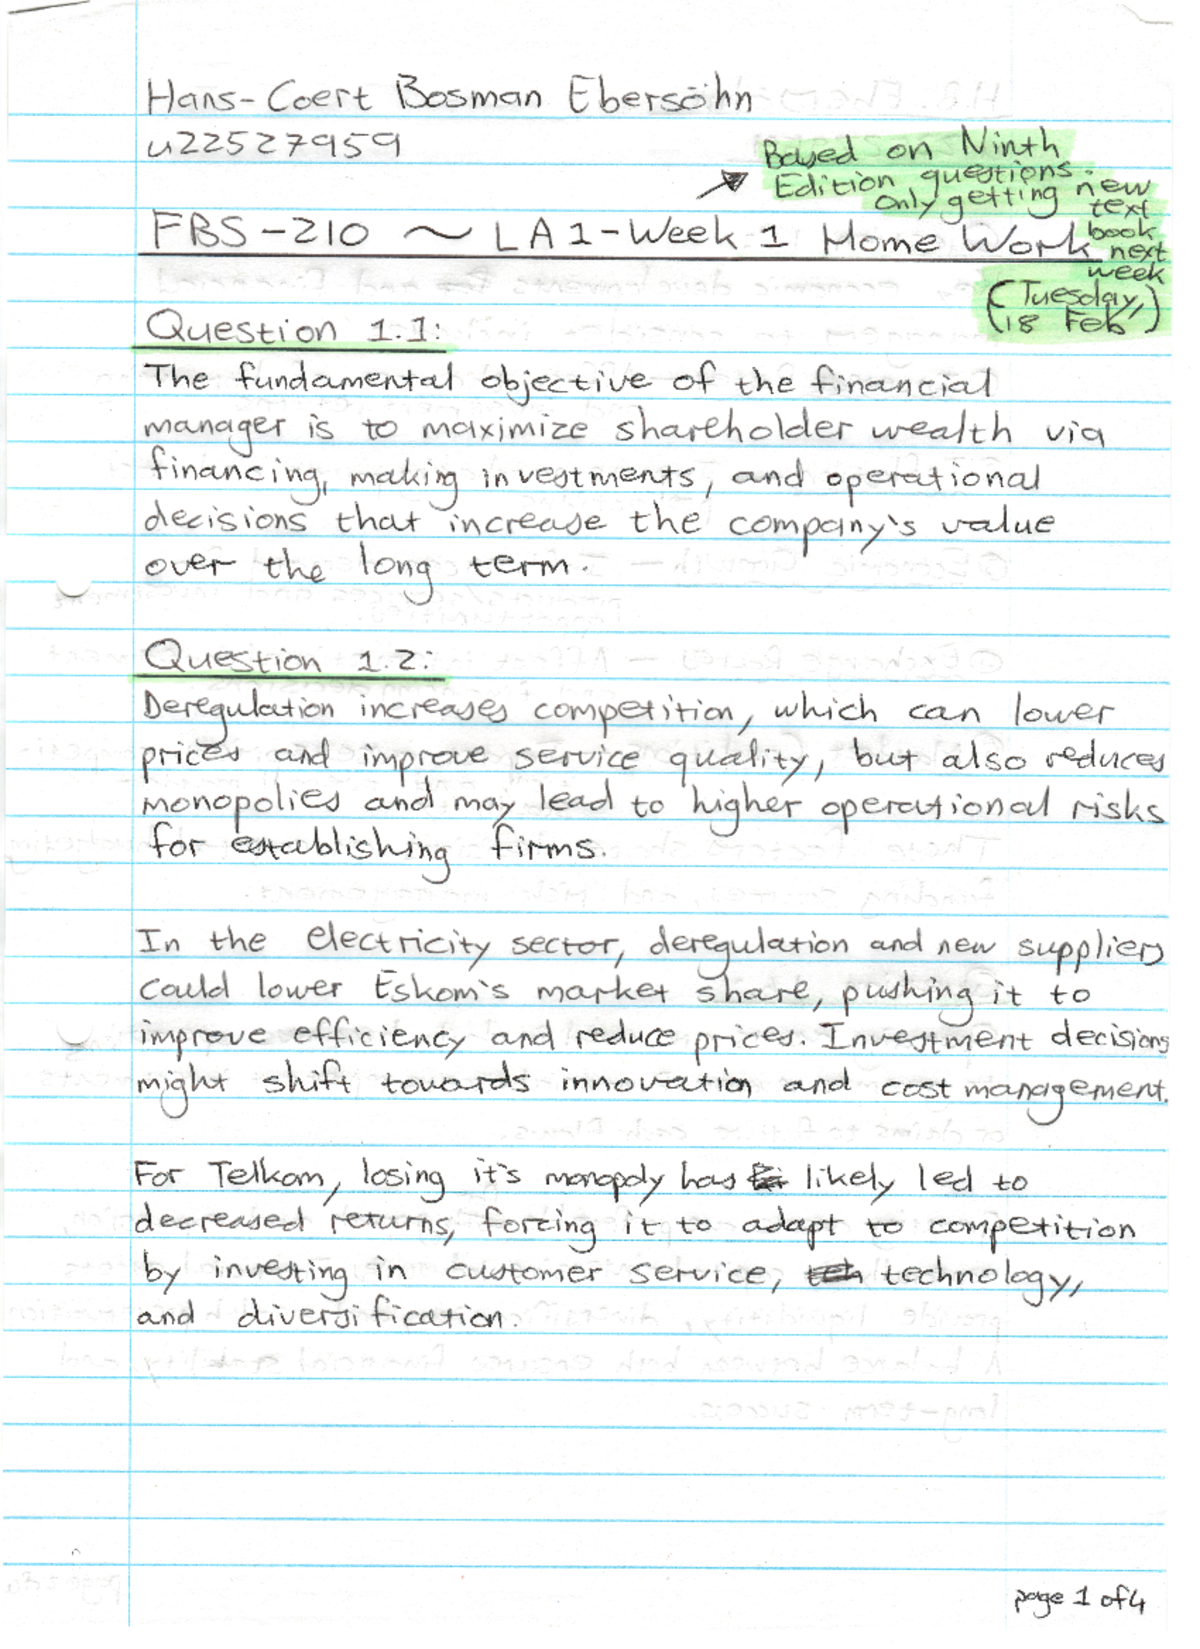 Hans-Coert Bosman Ebersöhn
u22527959
Based on Ninth
Edition questions.
Only getting new
text
book
next
week
(Tuesday,
18 Feb)
FBS-210 ~ LA1-Week 1 Home Work
Question 1.1:
The fundamental objective of the financial
manager is to maximize shareholder wealth via
financing, making investments, and operational
decisions that increase the company's value
over the long term.
Question 1.2:
Deregulation increases competition, which can lower
prices and improve service quality, but also reduces
monopolies and may lead to higher operational risks
for establishing firms.
In the electricity sector, deregulation and new suppliers
could lower Eskom's market share, pushing it to
improve efficiency and reduce prices. Investment decisions
might shift towards innovation and cost management.
For Telkom, losing it's monopoly has likely led to
decreased returns, forcing it to adapt to competition
by investing in customer service, technology,
and diversification.
page 1 of 4